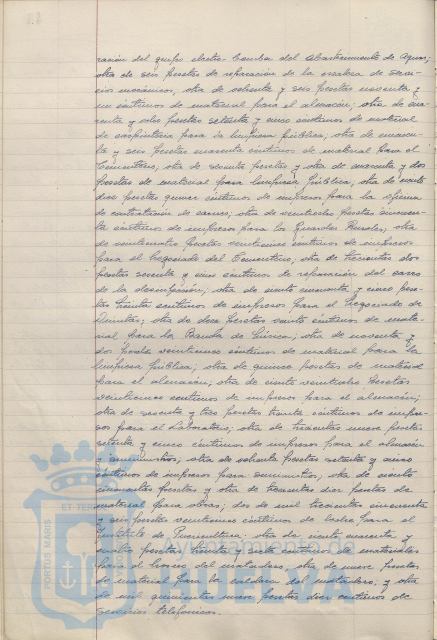 ración del grupo electro-bomba del Abastecimiento de Aguas;
otra de seis pesetas de reparación de la escalera de servi-
cios mecánicos, otra de ochenta y seis pesetas noventa y
un céntimos de material para el almacén; otra de cin-
cuenta y ocho pesetas setenta y cinco céntimos de material
de carpintería para la limpieza pública; otra de cincuen-
ta y seis pesetas noventa céntimos de material para el
Cementerio, otra de ochenta pesetas y otra de cincuenta y dos
pesetas de material para limpieza pública, otra de ciento
diez pesetas quince céntimos de impresos para la oficina
de contratación de carnes; otra de veintiocho pesetas cincuen-
ta céntimos de impresos para los Guardas Rurales, otra
de veinticuatro pesetas veinticinco céntimos de impresos
para el Negociado del Cementerio, otra de trescientas dos
pesetas sesenta y cinco céntimos de reparación del carro
de la desinfección; otra de ciento cincuenta y cinco pese-
tas treinta céntimos de impresos para el Negociado de
Quintas; otra de doce pesetas veinte céntimos de mate-
rial para la Banda de Música; otra de noventa y
dos pesetas veinticinco céntimos de material para la
limpieza pública; otra de quince pesetas de material
para el almacén; otra de ciento veintiocho pesetas
veinticinco céntimos de impresos para el almacén;
otra de sesenta y tres pesetas treinta céntimos de impre-
sos para el Laboratorio; otra de trescientas nueve pesetas
setenta y cinco céntimos de impresos para el almacén
y suministros; otra de ochenta pesetas setenta y cinco
céntimos de impresos para suministros, otra de ciento
cincuenta pesetas y otra de trescientas diez pesetas de
material para obras; dos de mil trescientas cincuenta
y seis pesetas veinticinco céntimos de leches para el
Instituto de Puericultura; otra de ciento cincuenta y
cuatro pesetas treinta y siete céntimos de materiales
para el horno del matadero, otra de nueve pesetas
de material para la caldera del matadero; y otra
de mil quinientas nueve pesetas diez céntimos de
servicios telefónicos.
PORTUS MARIS
ET TERRAE
Ayuntamiento de